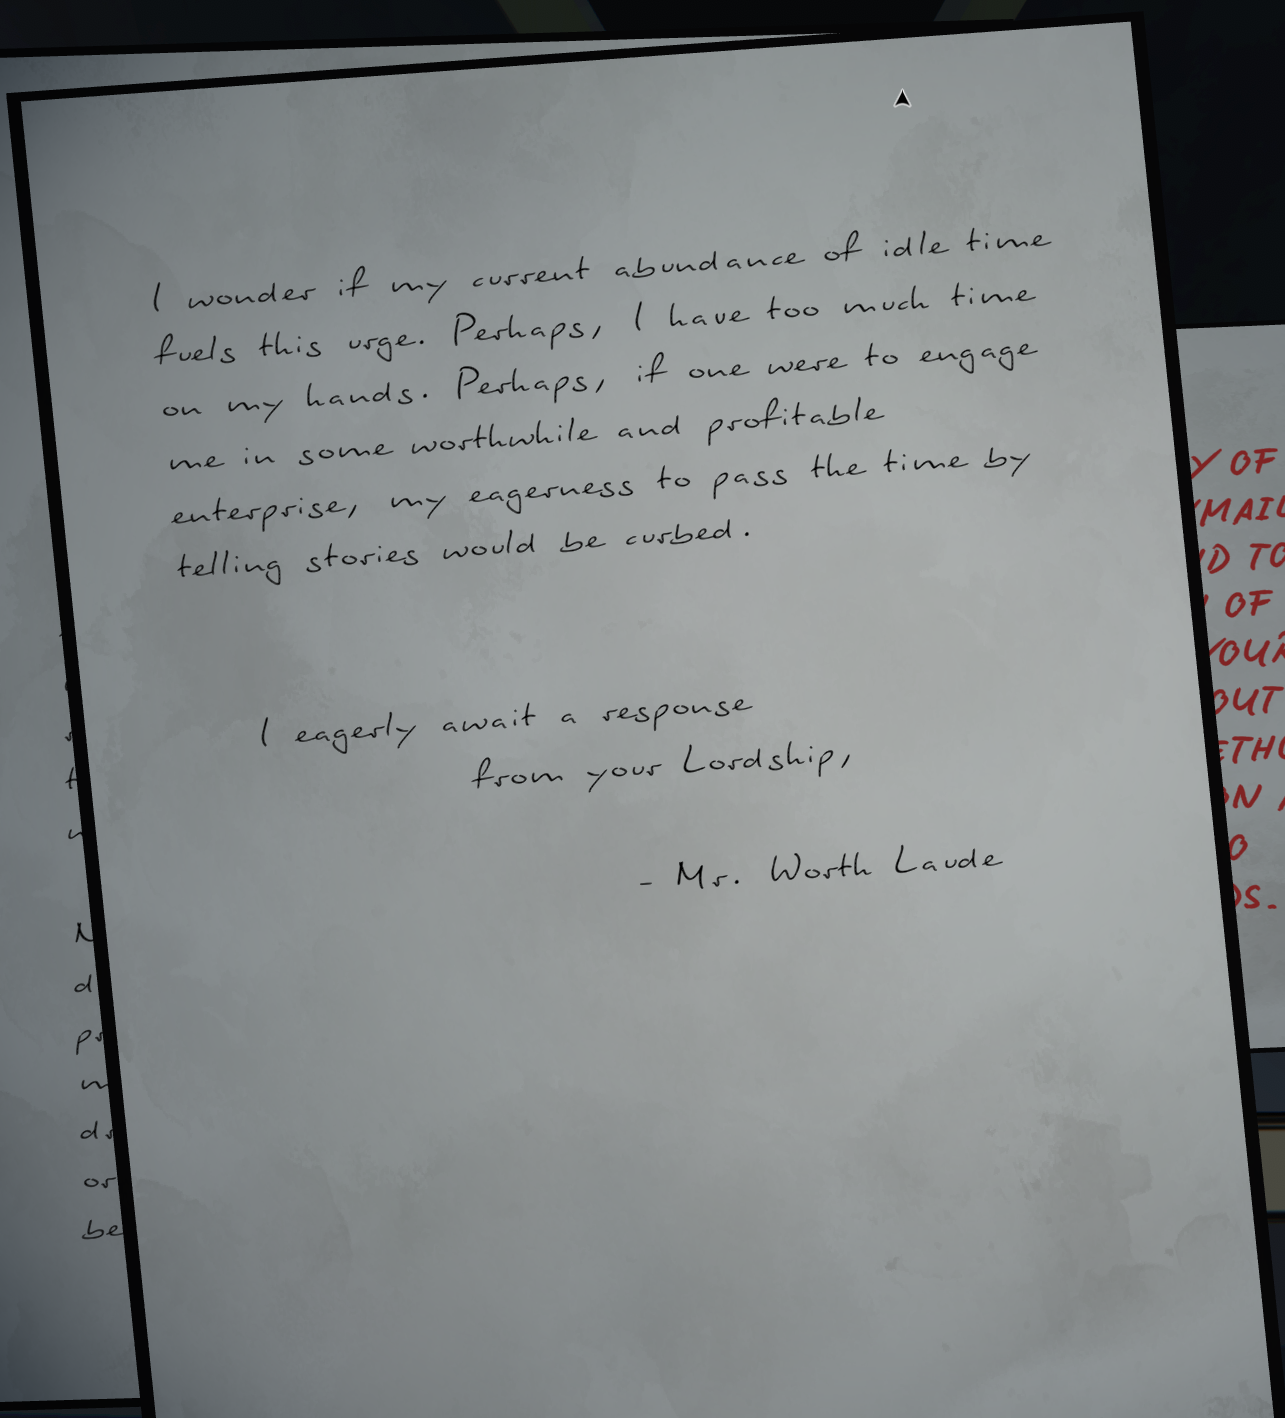 I wonder if my current abundance of idle time
fuels this urge. Perhaps, I have too much time
on my hands. Perhaps, if one were to engage
me in some worthwhile and profitable
enterprise, my eagerness to pass the time by
telling stories would be curbed.
I eagerly await a response
from your Lordship,
- Mr. Worth Laude
be
OF
OF